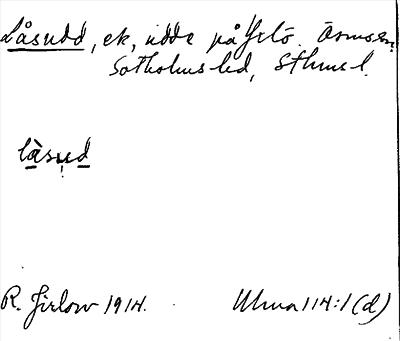 Låsudd, ek, udde på Yxlö. Ösmo sn,
Sotholms hd, Sthms l.
làsud
R. Jirlow 1914. Ulma 114:1 (d)